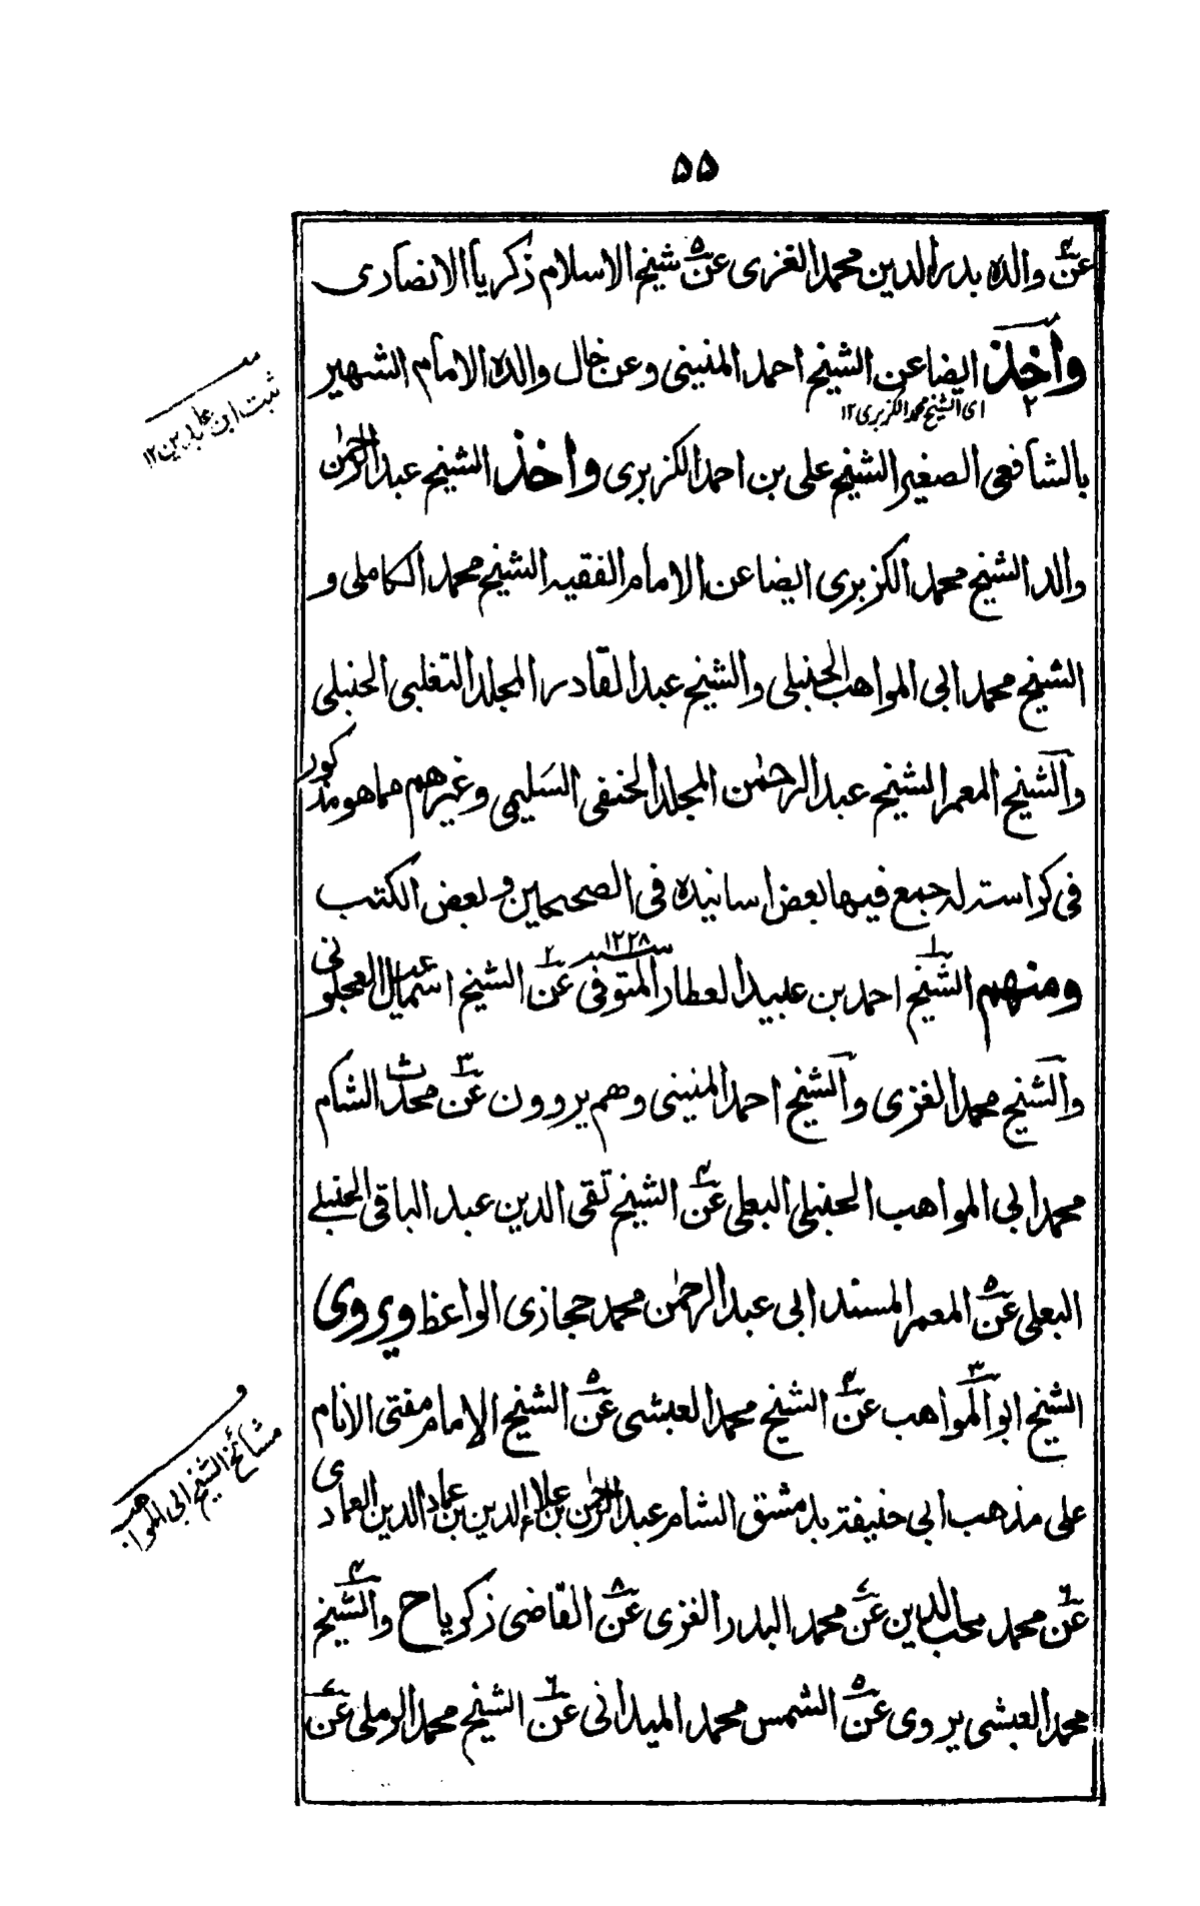 ۵۵
عن والده بدر الدين محمد الغزى عن شيخ الاسلام زكريا الانصارى
واخذ ايضا عن الشيخ احمد المنينى وعن خال والده الامام الشهير
اى الشيخ محمد الكزبرى ۱۲
بالشافعى الصغير الشيخ على بن احمد الكزبرى واخذ الشيخ عبد الرحمٰن
والد الشيخ محمد الكزبرى ايضا عن الامام الفقيه الشيخ محمد الكاملى و
الشيخ محمد ابى المواهب الحنبلى والشيخ عبد القادر المجلد التغلبى الحنبلى
والشيخ المعمر الشيخ عبد الرحمٰن المجلد الحنفى السليمى وغيرهم مما هو مذكور
فى كراسته له جمع فيها بعض اسانيده فى الصحيحين وبعض الكتب
ومنهم الشيخ احمد بن عبيد العطار المتوفى ۱۲۲۸ عن الشيخ اسمٰعيل العجلونى
والشيخ محمد الغزى والشيخ احمد المنينى وهم يروون عن محدث الشام
محمد ابى المواهب الحنبلى البعلى عن الشيخ تقى الدين عبد الباقى الحنبلے
البعلى عن المعمر المسند ابى عبد الرحمٰن محمد حجازى الواعظ ويروى
الشيخ ابو المواهب عن الشيخ محمد العبشى عن الشيخ الامام مفتى الانام
على مذهب ابى حنيفة بدمشق الشام عبد الرحمٰن بن علاء الدين بن عماد الدين العمادى
عن محمد محب الدين عن محمد البدر الغزى عن القاضى زكريا ح والشيخ
محمد العبشى يروى عن الشمس محمد الميدانى عن الشيخ محمد الرملى عن
ثبت ابن عابدين ۱۲
مشائخ الشيخ ابى المواهب